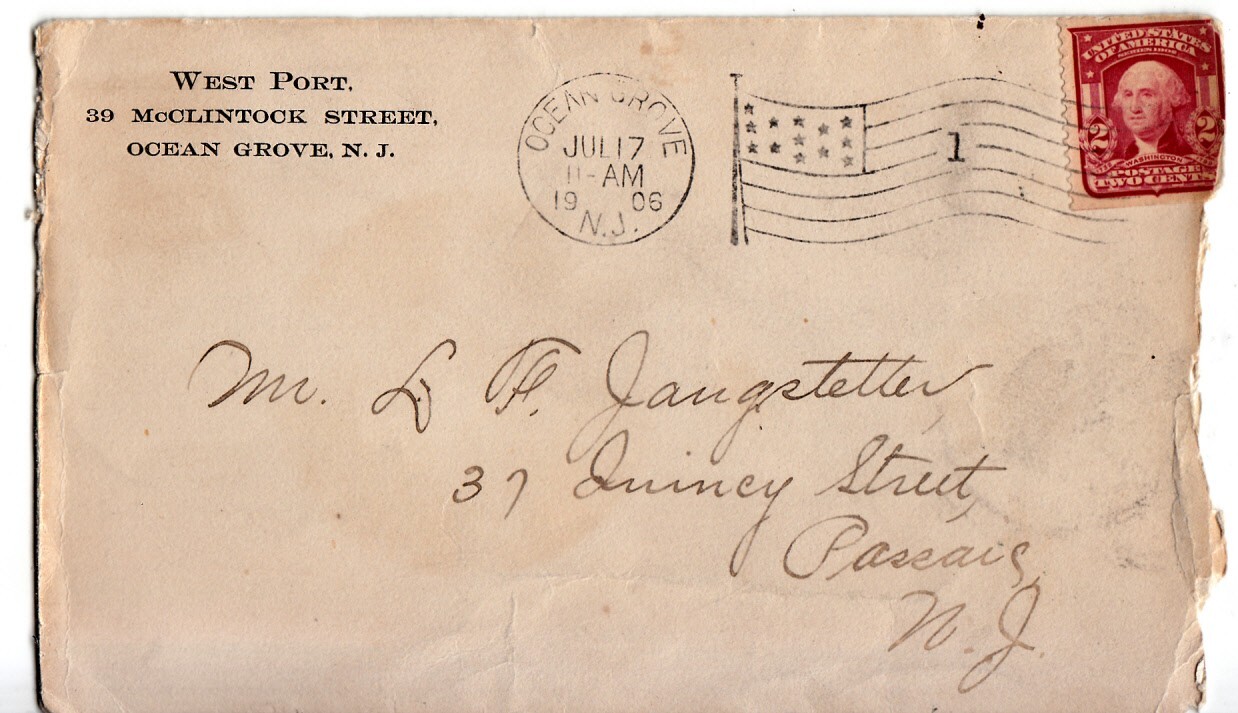 West Port,
39 McClintock Street,
Ocean Grove, N. J.
OCEAN GROVE
JUL 17
11-AM
19 06
N.J.
1
UNITED STATES
OF AMERICA
2 2
WASHINGTON
POSTAGE
TWO CENTS
Mr. L. F. Jangstetter,
37 Quincy Street,
Passaic,
N. J.